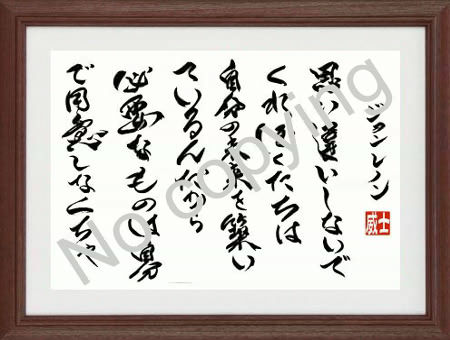 ジョンレノン
思い違いしないで
くれ ぼくたちは
自分の未来を築い
ているんだから
必要なものは自分
で用意しなくちゃ
威士
No copying